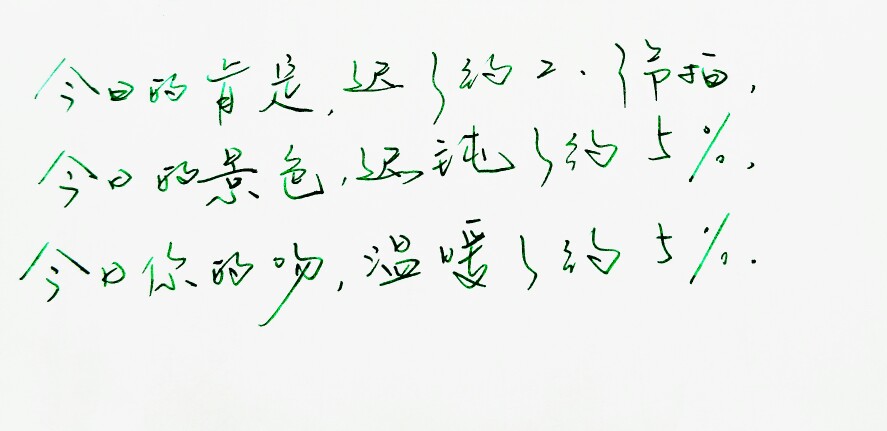 今日的背是,迟了约2.1节拍,
今日的景色,迟钝了约5%,
今日你的吻,温暖了约5%.